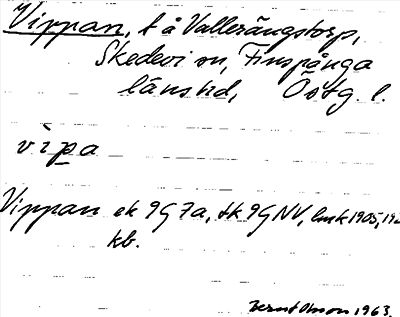 Vippan, t å Vallerängstorp,
Skedevi sn, Finspånga
läns hd, Östg. l.
vipa
Vippan ek 9G 7a, tk 9G NV, lmk 1905, 192
kb.
Bernt Olsson 1963.